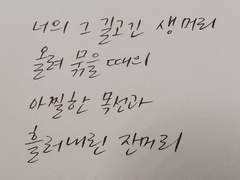 너의 그 길고긴 생머리
올려 묶을 때의
아찔한 목선과
흘러내린 잔머리